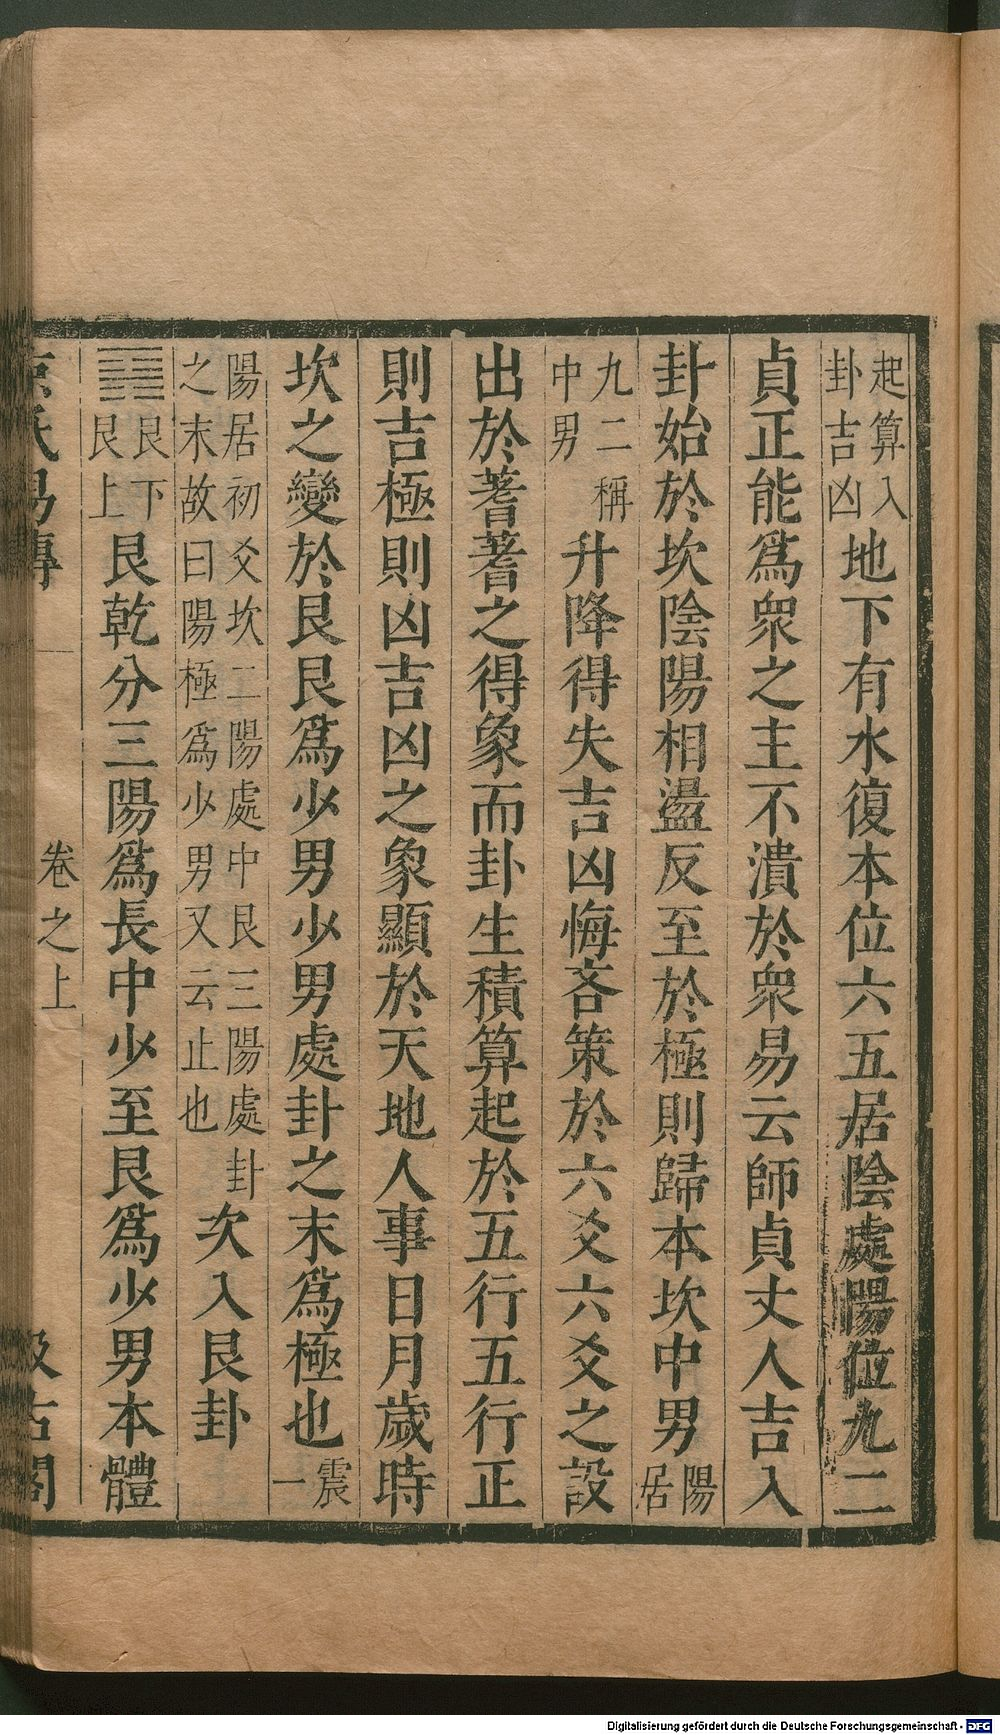 起算入卦吉凶地下有水復本位六五居陰處陽位九二
貞正能爲衆之主不潰於衆易云師貞丈人吉入
卦始於坎陰陽相盪反至於極則歸本坎中男陽居
九二稱中男升降得失吉凶悔吝策於六爻六爻之設
出於蓍蓍之得象而卦生積算起於五行五行正
則吉極則凶吉凶之象顯於天地人事日月歲時
坎之變於艮艮爲少男少男處卦之末爲極也震一
陽居初爻坎二陽處中艮三陽處卦之末故曰陽極爲少男又云止也次入艮卦
䷳艮下艮上艮乾分三陽爲長中少至艮爲少男本體
京氏易傳 卷之上 汲古閣
Digitalisierung gefördert durch die Deutsche Forschungsgemeinschaft - DFG